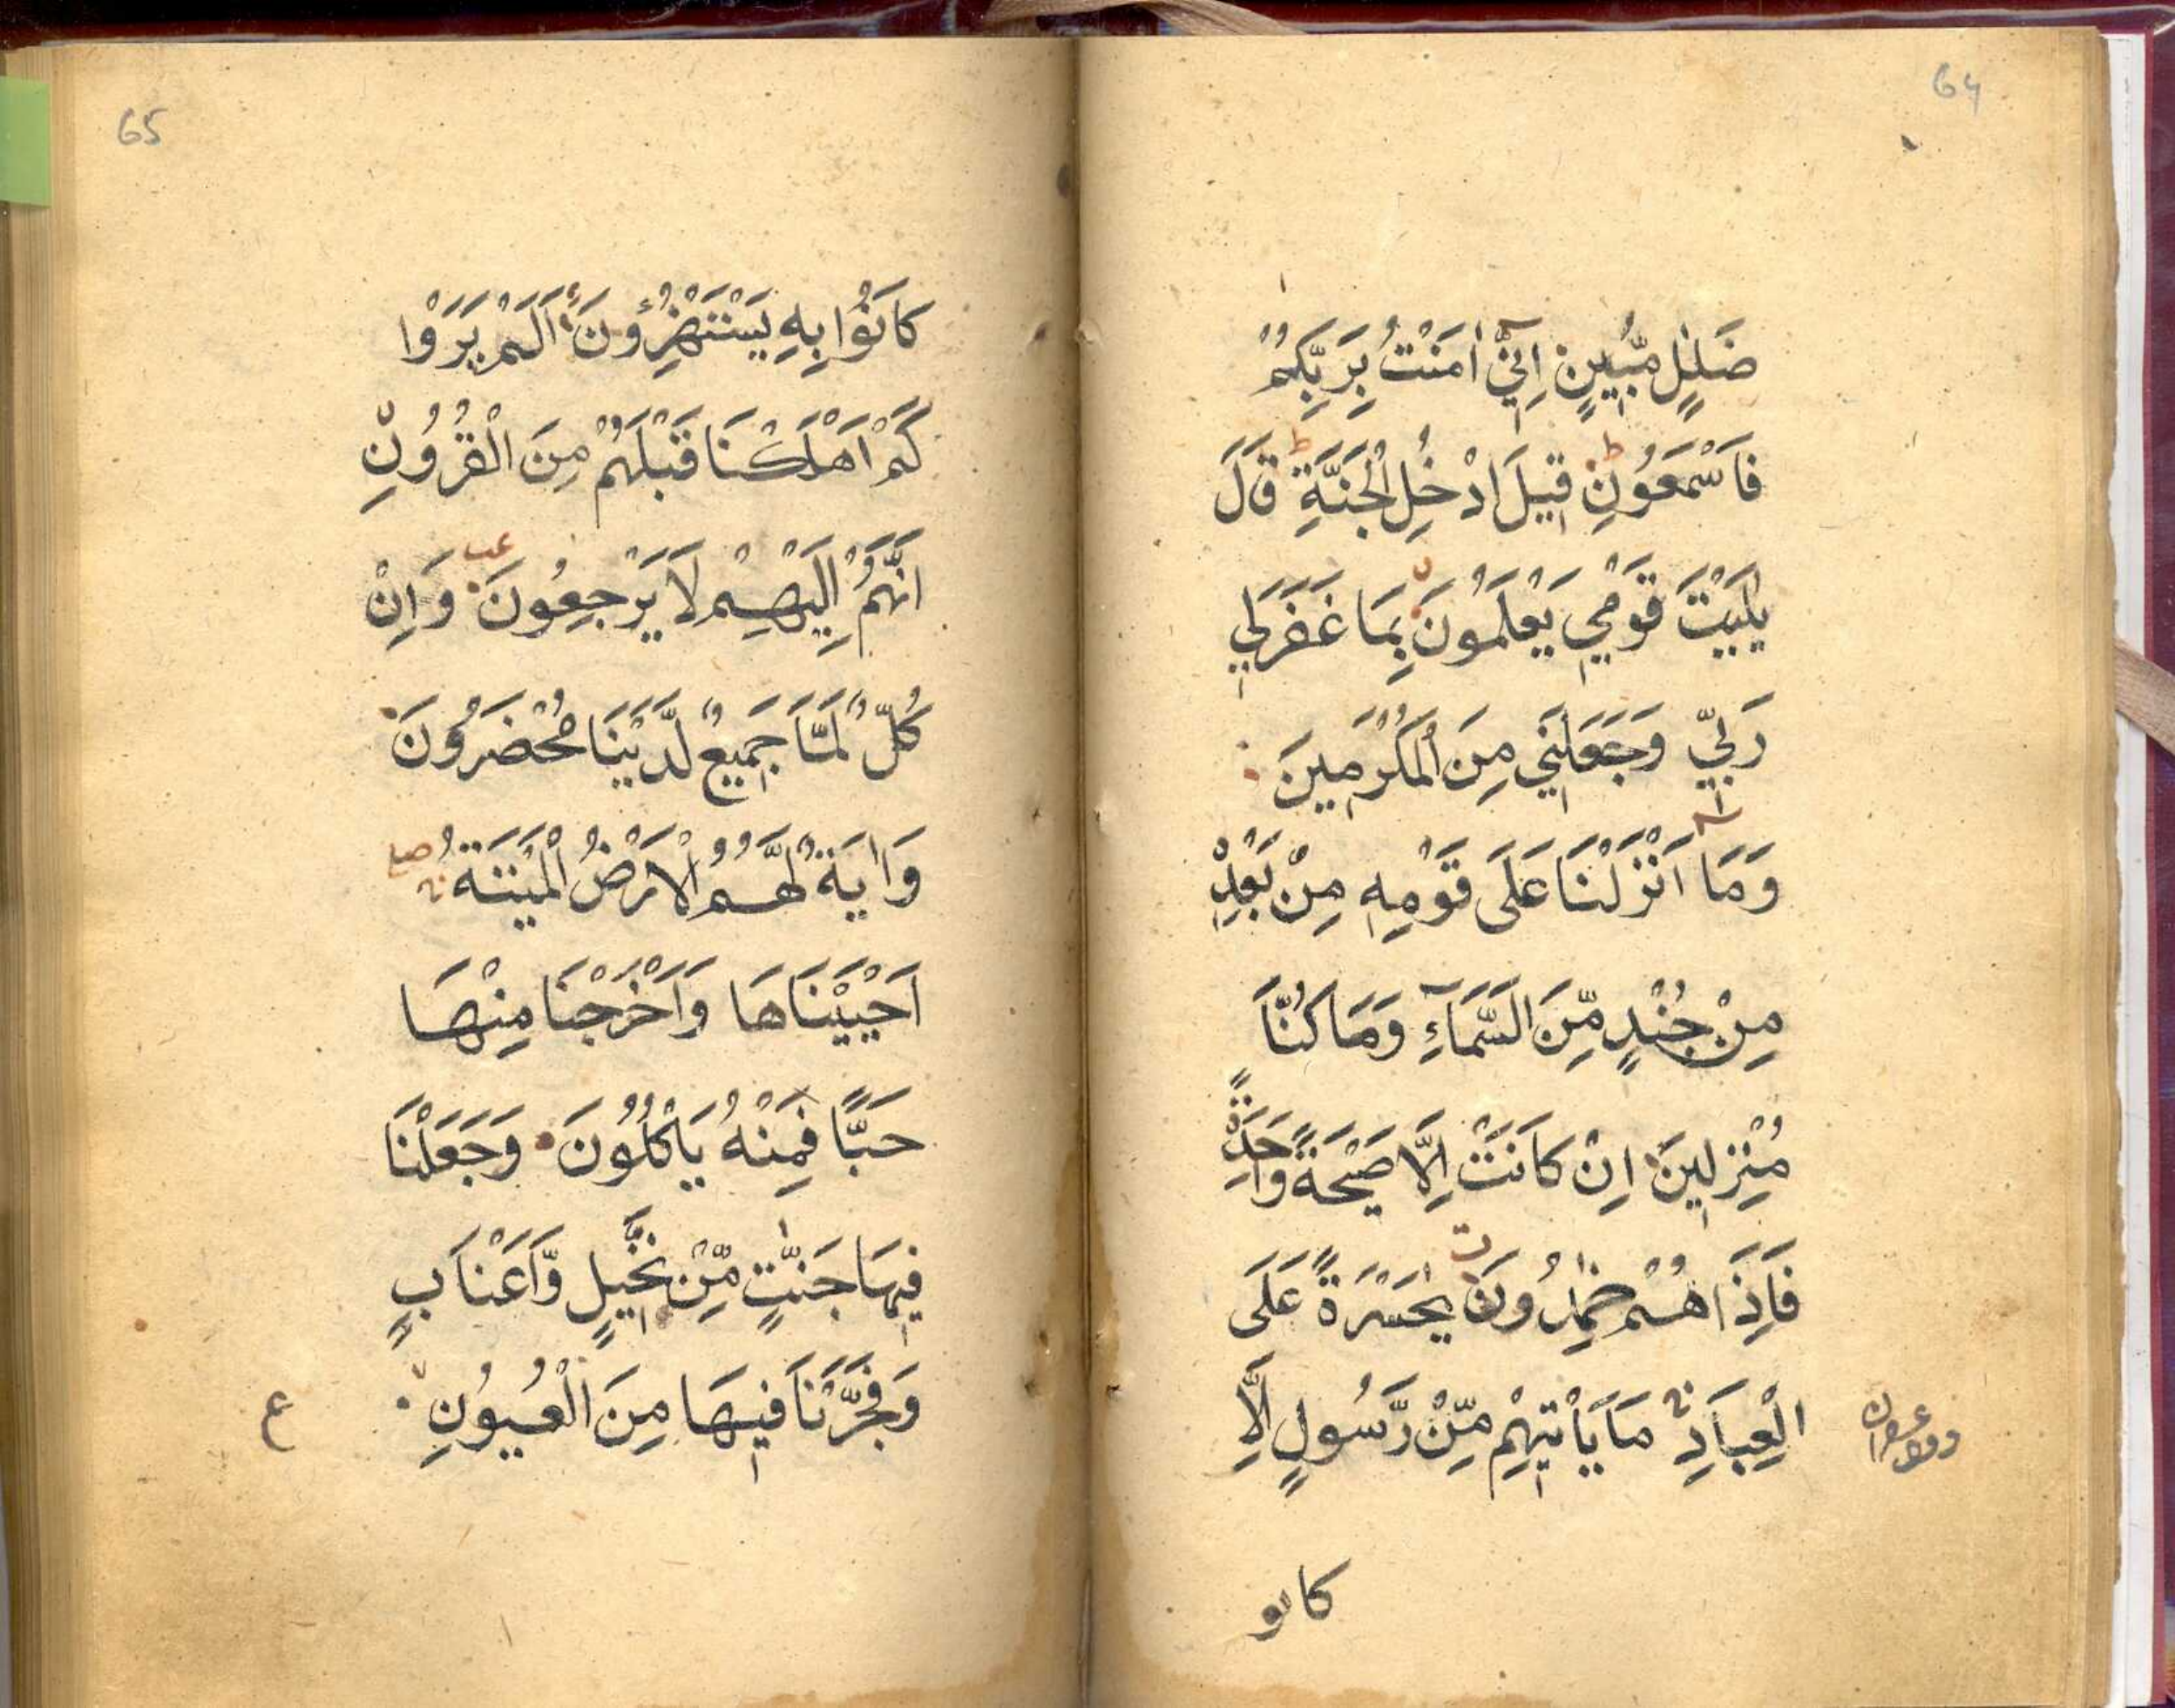 64
ضَلٰلٍ مُّبِينٍ اِنِّيٓ اٰمَنْتُ بِرَبِّكُمْ
فَاسْمَعُونِ ط قِيلَ ادْخُلِ الْجَنَّةَ ط قَالَ
يٰلَيْتَ قَوْمِي يَعْلَمُونَ بِمَا غَفَرَلِي
رَبِّي وَجَعَلَنِي مِنَ الْمُكْرَمِينَ
وَمَا اَنْزَلْنَا عَلَى قَوْمِهِ مِنْ بَعْدِهِ
مِنْ جُنْدٍ مِّنَ السَّمَآءِ وَمَا كُنَّا
مُنْزِلِينَ اِنْ كَانَتْ اِلَّا صَيْحَةً وَاحِدَةً
فَاِذَا هُمْ خٰمِدُونَ يٰحَسْرَةً عَلَى
الْعِبَادِ مَا يَاْتِيهِمْ مِّنْ رَّسُولٍ اِلَّا
كانو
65
كَانُوْا بِهِ يَسْتَهْزِءُونَ اَلَمْ يَرَوْا
كَمْ اَهْلَكْنَا قَبْلَهُمْ مِنَ الْقُرُوْنِ
اَنَّهُمْ اِلَيْهِمْ لَا يَرْجِعُونَ وَاِنْ
كُلٌّ لَمَّا جَمِيعٌ لَّدَيْنَا مُحْضَرُونَ
وَاٰيَةٌ لَّهُمُ الْاَرْضُ الْمَيْتَةُ
اَحْيَيْنَاهَا وَاَخْرَجْنَا مِنْهَا
حَبًّا فَمِنْهُ يَاْكُلُوْنَ وَجَعَلْنَا
فِيهَا جَنّٰتٍ مِّنْ نَّخِيلٍ وَّاَعْنَابٍ
وَفَجَّرْنَا فِيهَا مِنَ الْعُيُوْنِ
ع